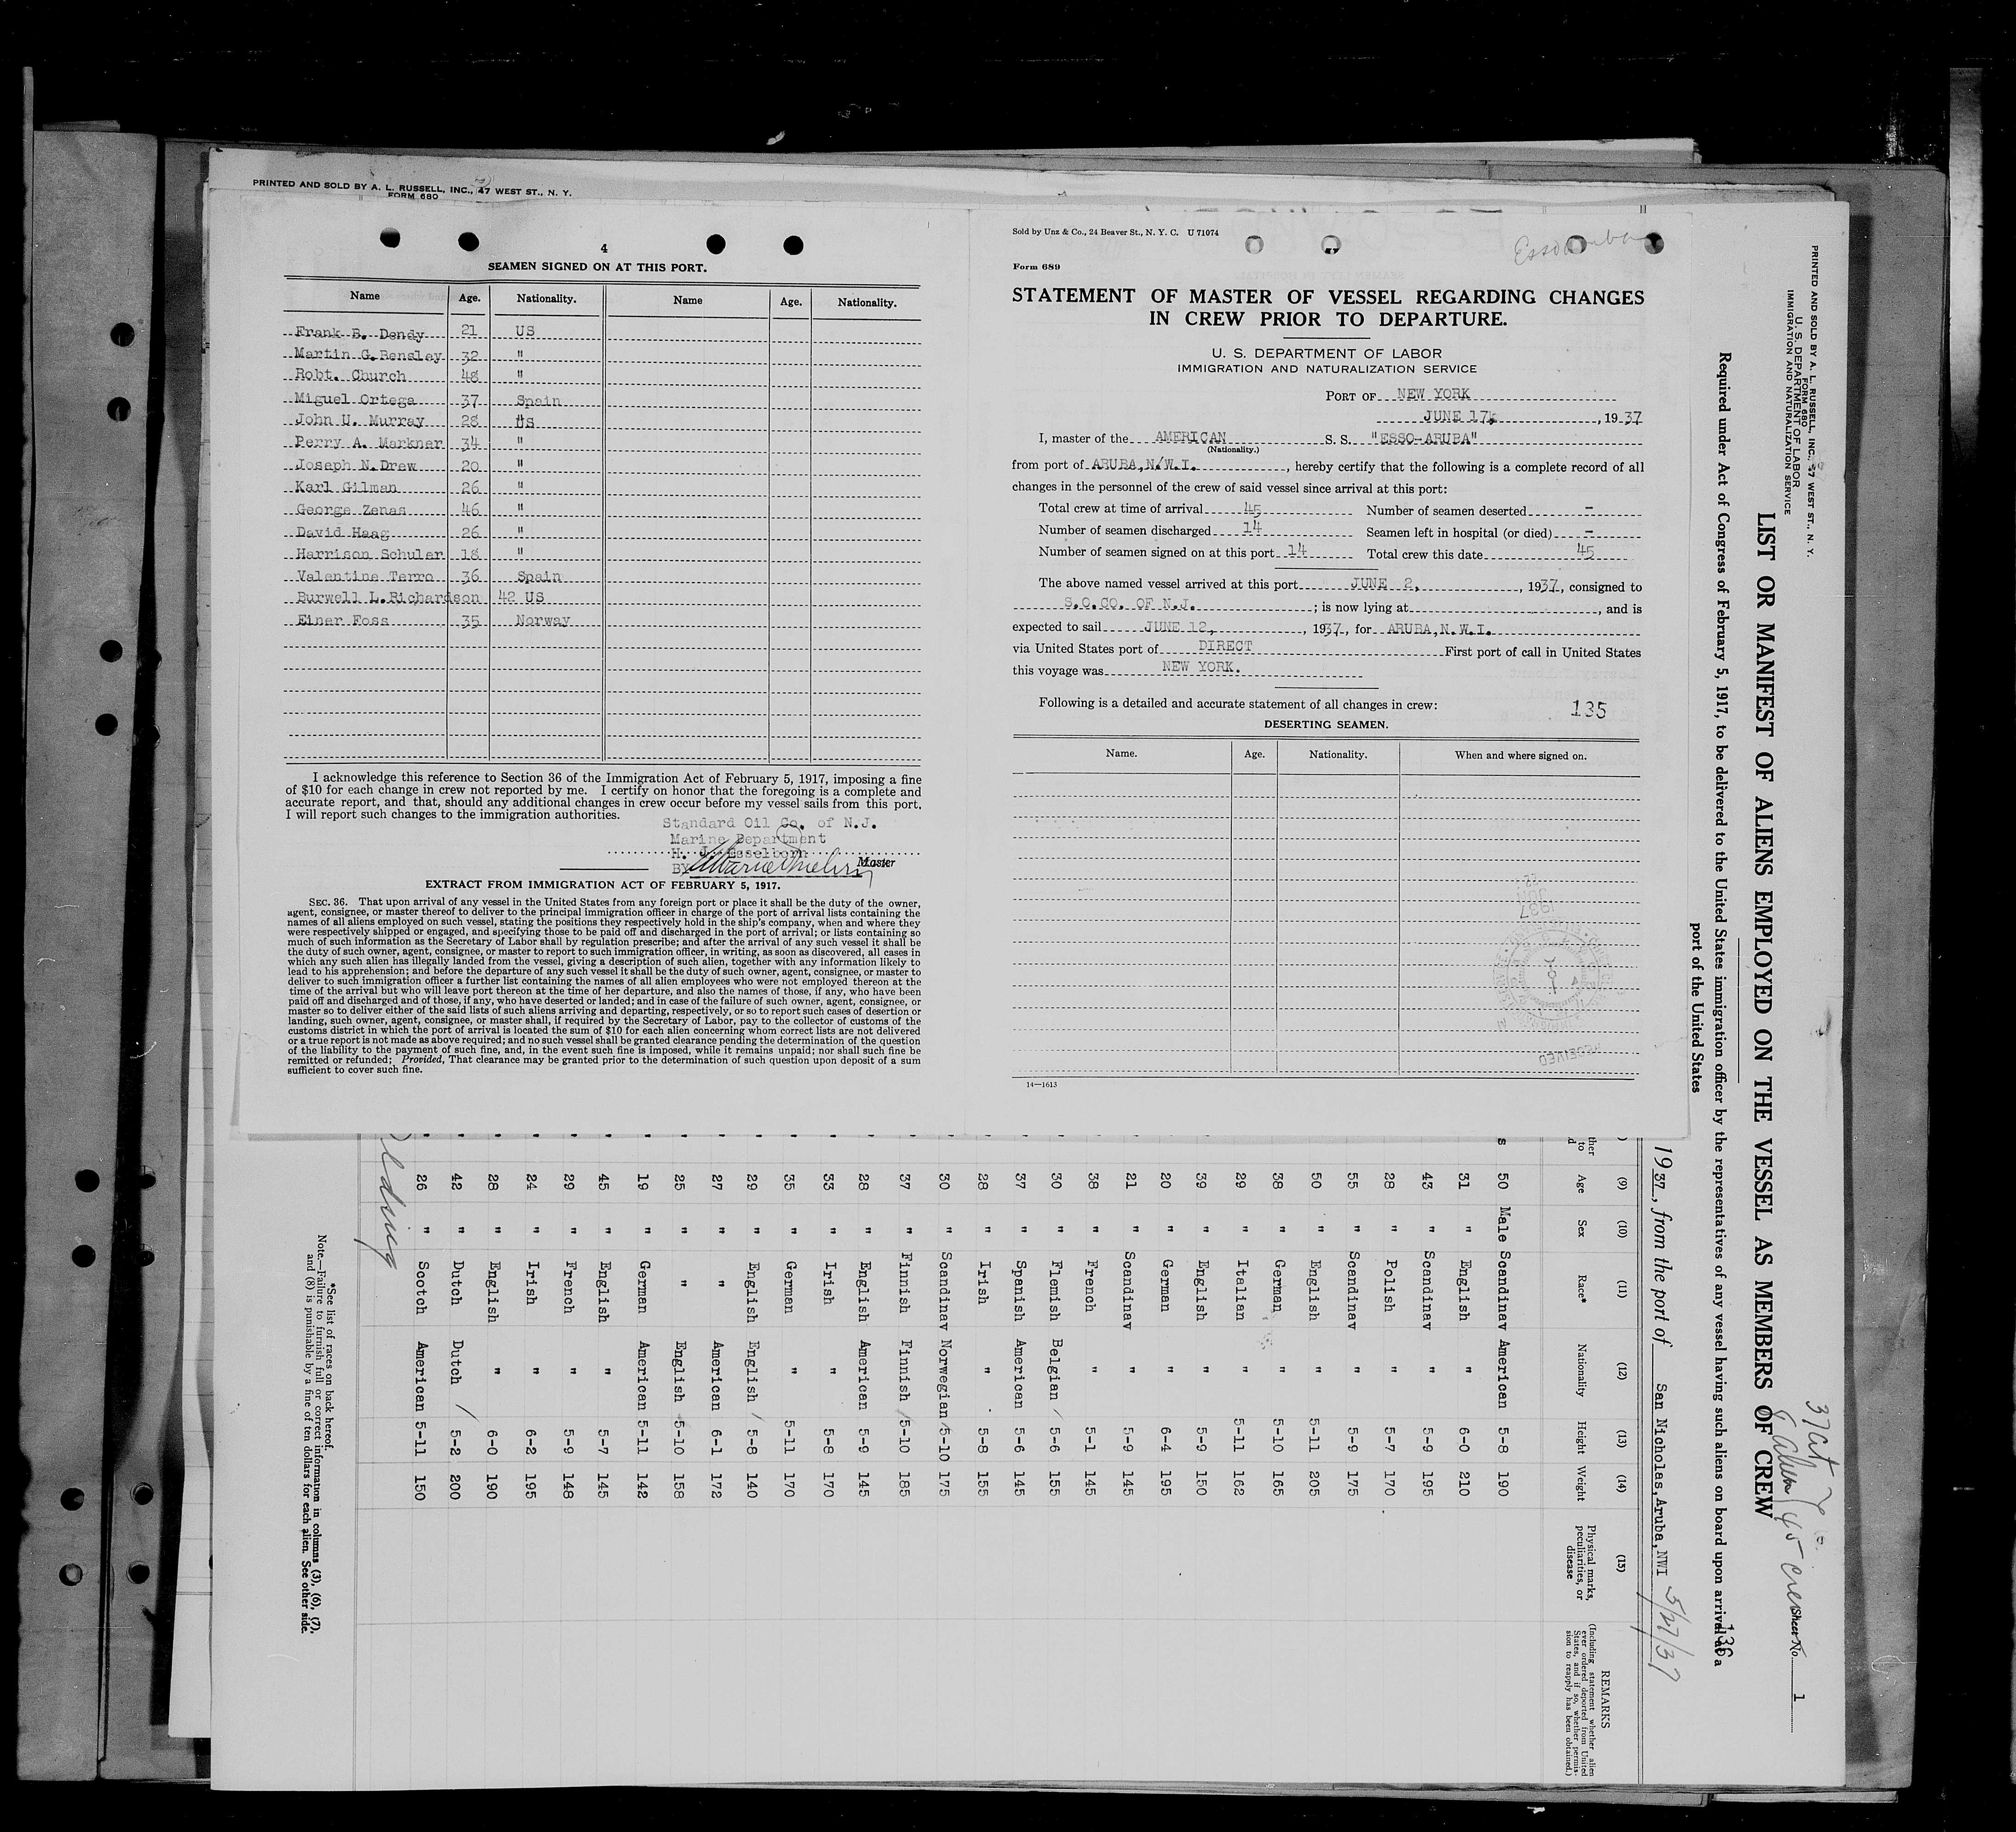 PRINTED AND SOLD BY A. L. RUSSELL, INC., 47 WEST ST., N. Y.
FORM 680
4
SEAMEN SIGNED ON AT THIS PORT.
Name Age. Nationality. Name Age. Nationality.
Frank B. Dendy 21 US
Martin G. Bensley 32 "
Robt. Church 48 "
Miguel Ortega 37 Spain
John U. Murray 28 US
Perry A. Markner 34 "
Joseph N. Drew 20 "
Karl Gilman 26 "
George Zenas 46 "
David Haag 26 "
Harrison Schuler 18 "
Valentine Terro 36 Spain
Burwell L. Richardson 42 US
Einer Foss 35 Norway
I acknowledge this reference to Section 36 of the Immigration Act of February 5, 1917, imposing a fine
of $10 for each change in crew not reported by me. I certify on honor that the foregoing is a complete and
accurate report, and that, should any additional changes in crew occur before my vessel sails from this port,
I will report such changes to the immigration authorities.
Standard Oil Co. of N.J.
Marine Department
H. J. Esselborn
BY Master
EXTRACT FROM IMMIGRATION ACT OF FEBRUARY 5, 1917.
SEC. 36. That upon arrival of any vessel in the United States from any foreign port or place it shall be the duty of the owner,
agent, consignee, or master thereof to deliver to the principal immigration officer in charge of the port of arrival lists containing the
names of all aliens employed on such vessel, stating the positions they respectively hold in the ship's company, when and where they
were respectively shipped or engaged, and specifying those to be paid off and discharged in the port of arrival; or lists containing so
much of such information as the Secretary of Labor shall by regulation prescribe; and after the arrival of any such vessel it shall be
the duty of such owner, agent, consignee, or master to report to such immigration officer, in writing, as soon as discovered, all cases in
which any such alien has illegally landed from the vessel, giving a description of such alien, together with any information likely to
lead to his apprehension; and before the departure of any such vessel it shall be the duty of such owner, agent, consignee, or master to
deliver to such immigration officer a further list containing the names of all alien employees who were not employed thereon at the
time of the arrival but who will leave port thereon at the time of her departure, and also the names of those, if any, who have been
paid off and discharged and of those, if any, who have deserted or landed; and in case of the failure of such owner, agent, consignee, or
master so to deliver either of the said lists of such aliens arriving and departing, respectively, or so to report such cases of desertion or
landing, such owner, agent, consignee, or master shall, if required by the Secretary of Labor, pay to the collector of customs of the
customs district in which the port of arrival is located the sum of $10 for each alien concerning whom correct lists are not delivered
or a true report is not made as above required; and no such vessel shall be granted clearance pending the determination of the question
of the liability to the payment of such fine, and, in the event such fine is imposed, while it remains unpaid; nor shall such fine be
remitted or refunded; Provided, That clearance may be granted prior to the determination of such question upon deposit of a sum
sufficient to cover such fine.
Sold by Unz & Co., 24 Beaver St., N. Y. C. U 71074
Form 689
STATEMENT OF MASTER OF VESSEL REGARDING CHANGES
IN CREW PRIOR TO DEPARTURE.
U. S. DEPARTMENT OF LABOR
IMMIGRATION AND NATURALIZATION SERVICE
PORT OF NEW YORK
JUNE 17, 1937
I, master of the AMERICAN S. S. "ESSO-ARUBA"
(Nationality.)
from port of ARUBA, N.W.I., hereby certify that the following is a complete record of all
changes in the personnel of the crew of said vessel since arrival at this port:
Total crew at time of arrival 45 Number of seamen deserted -
Number of seamen discharged 14 Seamen left in hospital (or died) -
Number of seamen signed on at this port 14 Total crew this date 45
The above named vessel arrived at this port JUNE 2, 1937, consigned to
S.O.CO. OF N.J. ; is now lying at , and is
expected to sail JUNE 12, 1937, for ARUBA, N.W.I.
via United States port of DIRECT First port of call in United States
this voyage was NEW YORK.
Following is a detailed and accurate statement of all changes in crew: 135
DESERTING SEAMEN.
Name. Age. Nationality. When and where signed on.
RECEIVED
14—1613
PRINTED AND SOLD BY A. L. RUSSELL, INC., 47 WEST ST., N. Y.
FORM 680
U. S. DEPARTMENT OF LABOR
IMMIGRATION AND NATURALIZATION SERVICE
Sheet No. 1
LIST OR MANIFEST OF ALIENS EMPLOYED ON THE VESSEL AS MEMBERS OF CREW
136
Required under Act of Congress of February 5, 1917, to be delivered to the United States immigration officer by the representatives of any vessel having such aliens on board upon arrival at a
port of the United States
1937, from the port of San Nicholas, Aruba, NWI 5/27/37
(9) (10) (11) (12) (13) (14) (15)
Age Sex Race* Nationality Height Weight Physical marks, peculiarities, or disease REMARKS
(Including statement whether alien ever ordered deported from United States, and if so, whether permission to reapply has been obtained.)
50 Male Scandinav American 5-8 190
31 " English " 6-0 210
43 " Scandinav " 5-9 195
28 " Polish " 5-7 170
55 " Scandinav " 5-9 175
50 " English " 5-11 205
38 " German " 5-10 165
29 " Italian " 5-11 162
39 " English " 5-9 150
20 " German " 6-4 195
21 " Scandinav " 5-9 145
38 " French " 5-1 145
30 " Flemish Belgian 5-6 155
37 " Spanish American 5-6 145
28 " Irish " 5-8 155
30 " Scandinav Norwegian 5-10 175
37 " Finnish Finnish 5-10 185
28 " English American 5-9 145
33 " Irish " 5-8 170
35 " German " 5-11 170
29 " English English 5-8 140
27 " " American 6-1 172
25 " " English 5-10 158
19 " German American 5-11 142
45 " English " 5-7 145
29 " French " 5-9 148
24 " Irish " 6-2 195
28 " English " 6-0 190
42 " Dutch Dutch 5-2 200
26 " Scotch American 5-11 150
*See list of races on back hereof.
Note.—Failure to furnish full or correct information in columns (3), (6), (7),
and (8) is punishable by a fine of ten dollars for each alien. See other side.